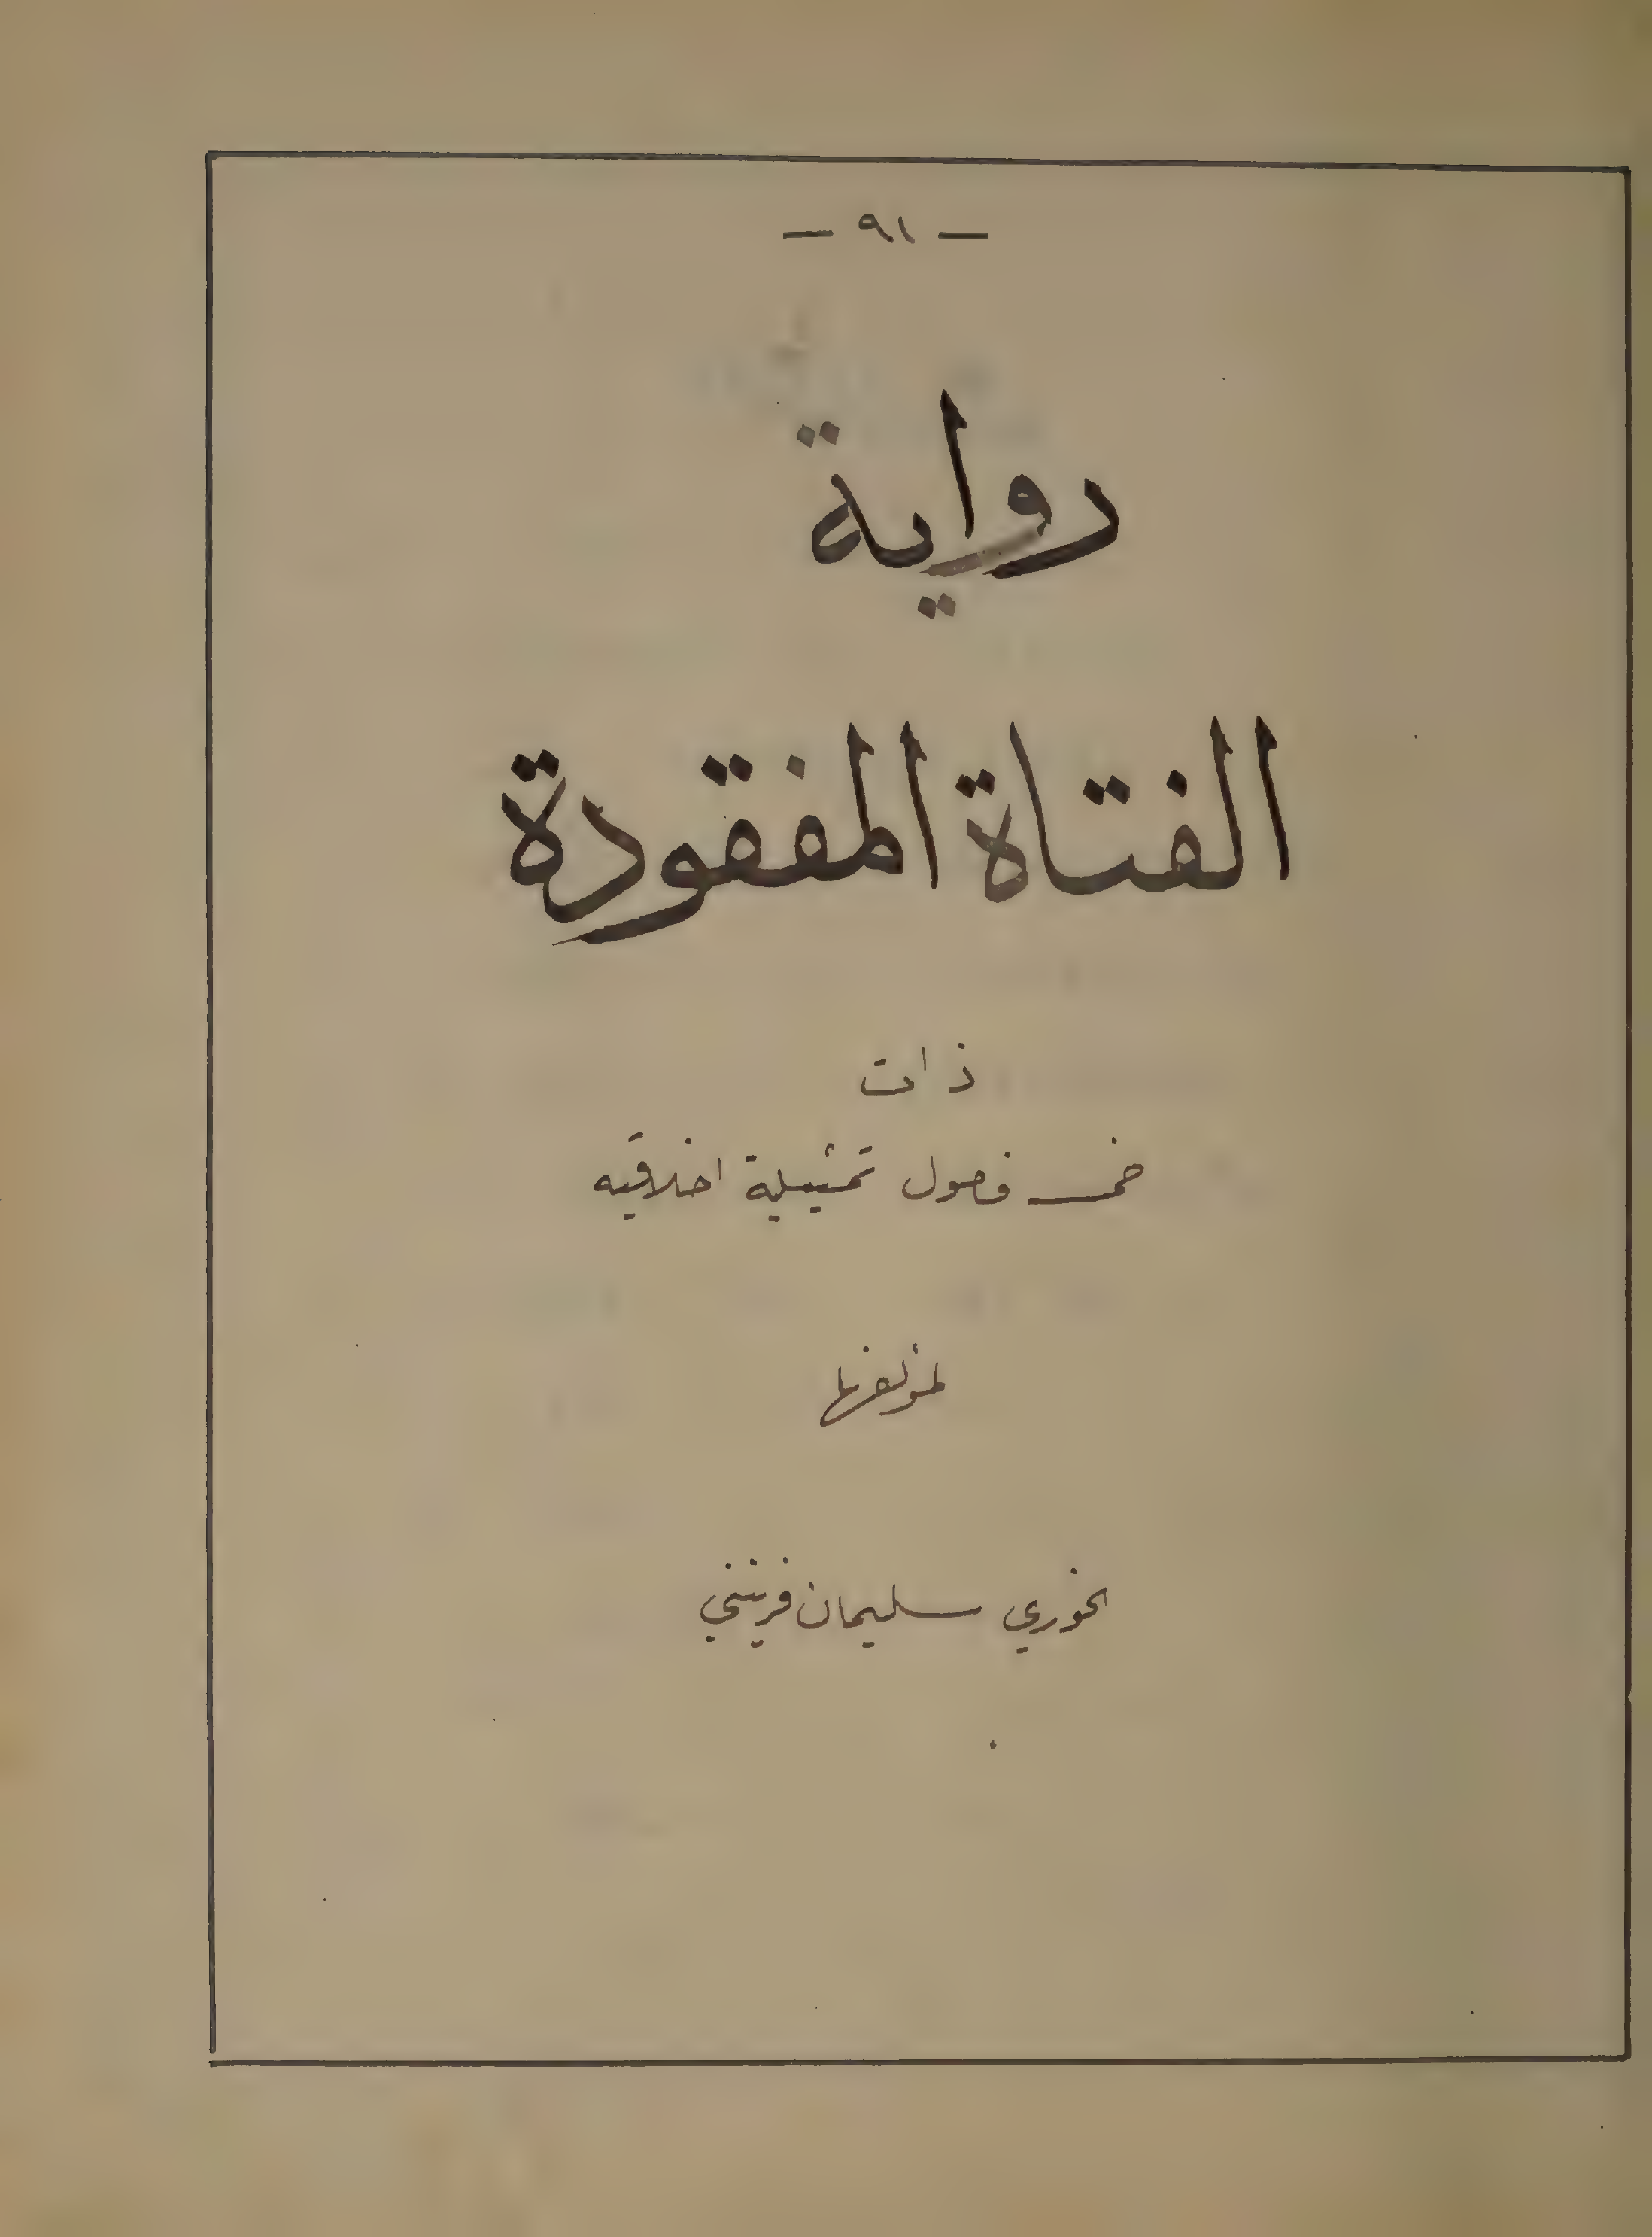 — ٩١ —
رواية
الفتاة المفقودة
ذات
خمس فصول تمثيلية اخلاقيه
لمؤلفها
الخوري سليمان فرينيني